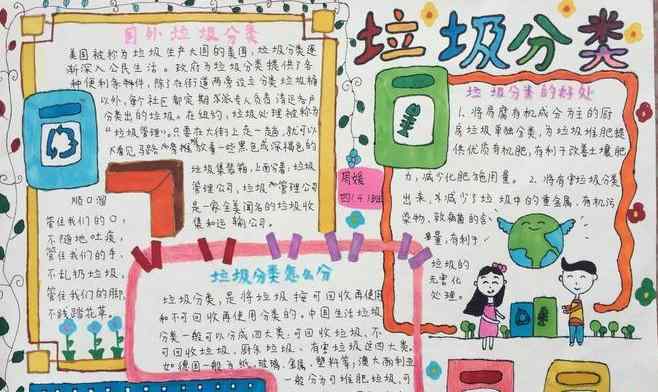 垃圾分类
国外垃圾分类
美国被称为垃圾生产大国的美国,垃圾分类逐
渐深入公民生活。政府为垃圾分类提供了各
种便利条件,除了在街道两旁设立分类垃圾桶
以外,每个社区都定期派专人负责清运各户
分类出的垃圾。在纽约,垃圾处理被称为
"垃圾管理"。只要在大街上走一走,就可以
看见马路旁停放着一些黑色或深褐色的
垃圾集装箱,上面分着:垃圾
管理公司,垃圾管理公司
是一家全美闻名的垃圾收
集和运输公司。
顺口溜
管住我们的口,
不随地吐痰,
管住我们的手,
不乱扔垃圾,
管住我们的脚,
不践踏花草。
周媛
四(4)班
垃圾分类的好处
1.将易腐有机成分为主的厨
房垃圾单独分类,为垃圾堆肥提
供优质有机肥,有利于改善土壤肥
力,减少化肥施用量。2.将有害垃圾分类
出来,减少了垃圾中的重金属、有机污
染物、致病菌的含
量,有利于
垃圾的
无害化
处理。
垃圾分类怎么分
垃圾分类,是将垃圾按可回收再使用
和不可回收再使用分类的。中国生活垃圾
分类一般可以分成四大类:可回收垃圾、不
可回收垃圾、厨余垃圾、有害垃圾这四大类。
如德国一般为纸、玻璃、金属、塑料等;澳大利亚
一般分为可堆肥垃圾,可